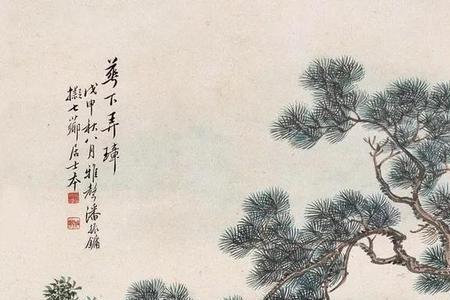 萼下弄璋
戊申秋八月雅聲潘振鏞
擬七薌居士本